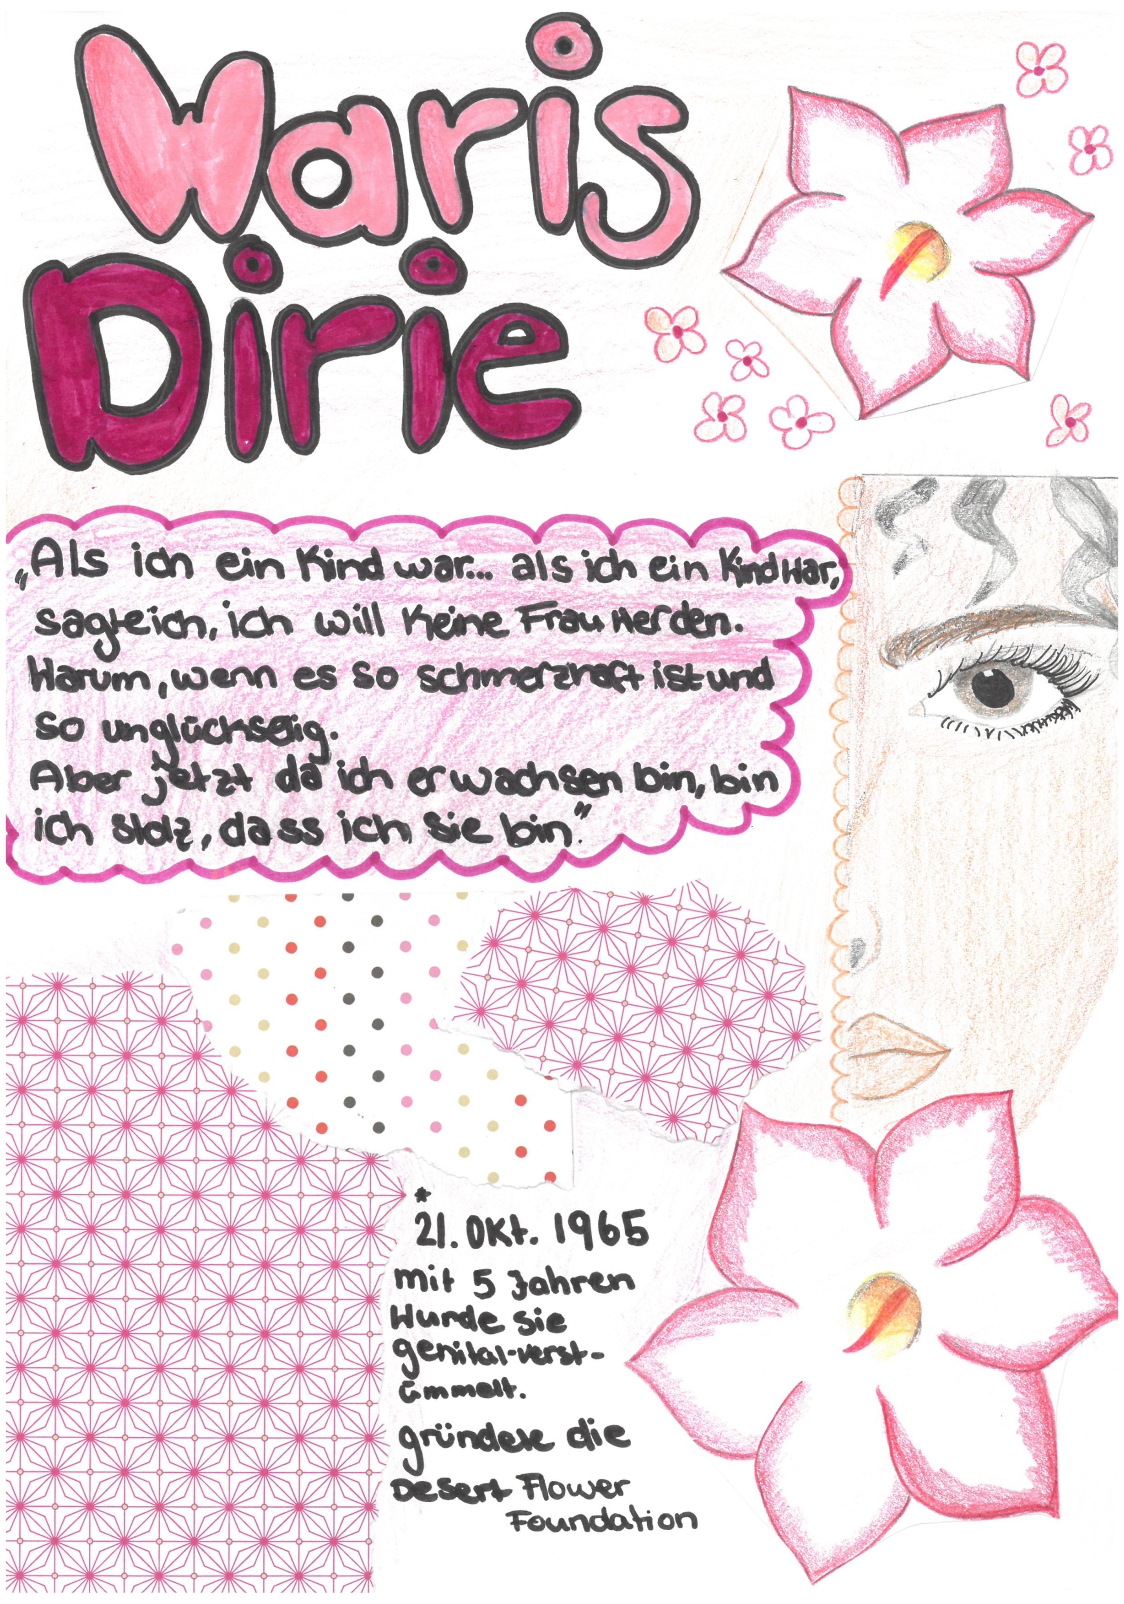 Waris
Dirie
„Als ich ein Kind war... als ich ein Kind war,
sagte ich, ich will keine Frau werden.
Warum, wenn es so schmerzhaft ist und
so unglückselig.
Aber jetzt da ich erwachsen bin, bin
ich stolz, dass ich sie bin."
*
21. Okt. 1965
mit 5 Jahren
wurde sie
genital-verst-
ümmelt.
gründete die
Desert Flower
Foundation